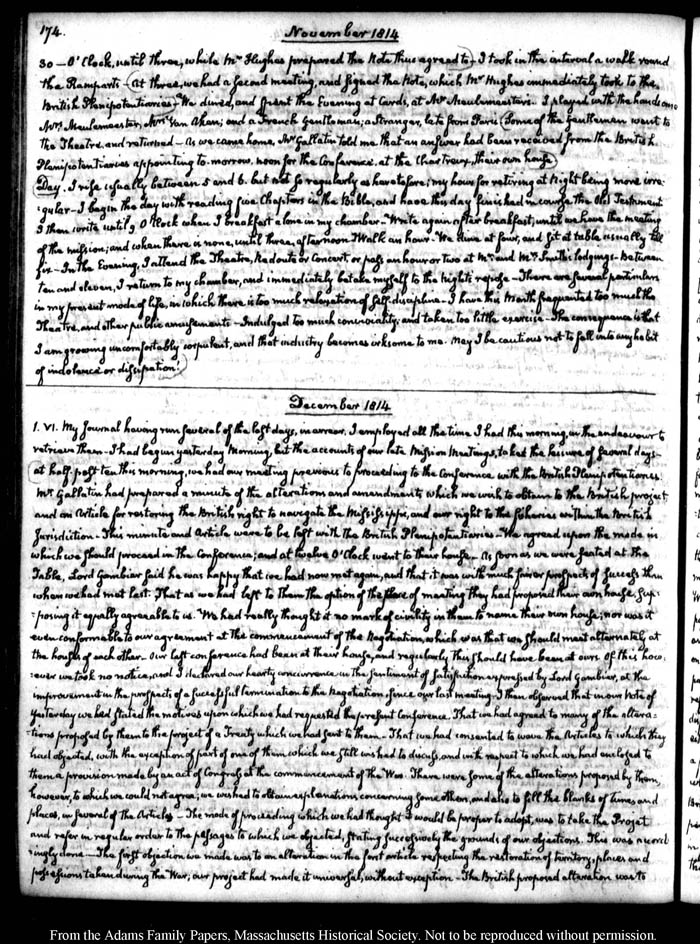 174.
November 1814
30 — O'Clock, until three, while Mr Hughes prepared the Note thus agreed to) — I took in the interval a walk round
the Ramparts — (At three, we had a second meeting, and signed the Note, which Mr Hughes immediately took to the
British Plenipotentiaries — We dined, and spent the Evening at Cards, at Mr Meulemeester's. I played with the handsome
Mrs. Meulemeester, Mrs Van Aken; and a French Gentleman; a Stranger, late from Paris (Some of the Gentlemen went to
the Theatre, and returned — As we came home, Mr Gallatin told me that an answer had been received from the British
Plenipotentiaries appointing to-morrow, noon for the Conference, at the Chartreux, their own house)
(Day. I rise usually between 5 and 6. but not so regularly as heretofore; my hour for retiring at Night being more irre-
:gular — I begin the day with reading five Chapters in the Bible, and have this day finished in course the Old Testament
I then write until 9 O'Clock when I breakfast alone in my chamber — Write again after breakfast, until we have the meeting
of the mission; and when there is none, until three, afternoon I Walk an hour — We dine at four, and sit at table usually till
six — In the Evening, I attend the Theatre, Redoute or Concert, or pass an hour or two at Mr and Mrs Smith's lodgings — Between
ten and eleven, I return to my chamber, and immediately betake myself to the night's repose — There are several particulars
in my present mode of life, in which there is too much relaxation of self-discipline — I have this Month frequented too much the
Theatre, and other public amusements — Indulged too much conviviality, and taken too little exercise — The consequence is that
I am growing uncomfortably corpulent, and that industry becomes irksome to me. May I be cautious not to fall into any habit
of indolence or dissipation!)
December 1814
1. VI. My Journal having run several of the last days, in arrear, I employed all the time I had this morning, in the endeavour to
retrieve them — I had begun yesterday Morning, but the accounts of our late Mission Meetings, take the leisure of several days —
at half-past ten this morning, we had our meeting previous to proceeding to the Conference with the British Plenipotentiaries.
Mr Gallatin had prepared a minute of the alterations and amendments which we wish to obtain to the British project
and an Article for restoring the British right to navigate the Mississippi, and our right to the fisheries within the British
Jurisdiction — This minute and Article were to be left with the British Plenipotentiaries — We agreed upon the mode in
which we should proceed in the Conference; and at twelve O'Clock went to their house — As soon as we were seated at the
Table, Lord Gambier said he was happy that we had now met again, and that it was with much fairer prospects of success than
when we had met last. That as we had left to them the option of the place of meeting they had proposed their own house, sup-
:posing it equally agreeable to us. We had really thought it no mark of civility in them to name their own house; nor was it
even conformable to our agreement at the commencement of the Negotiation, which was that we should meet alternately at
the houses of each other — Our last conference had been at their house, and regularly this should have been at ours. Of this how-
:ever we took no notice, and I declared our hearty concurrence in the sentiment of satisfaction expressed by Lord Gambier, at the
improvement in the prospects of a successful termination to the Negotiation, since our last meeting. I then observed that in our Note of
yesterday we had stated the motives upon which we had requested the present Conference. That we had agreed to many of the altera-
:tions proposed by them to the project of a Treaty which we had sent to them — That we had consented to wave the Articles to which they
had objected, with the exception of part of one of them which we still wished to discuss, and with respect to which we had enclosed to
them a provision made by an act of Congress at the commencement of the War. There were some of the alterations proposed by them,
however, to which we could not agree; we wished to obtain explanations concerning some others, and also to fill the blanks of times and
places, in several of the Articles — The mode of proceeding which we had thought it would be proper to adopt, was to take the Projet
and refer in regular order to the passages to which we objected, stating successively the grounds of our objections. This was accord-
:ingly done — The first objection we made was to an alteration in the first article respecting the restoration of territory, places and
possessions taken during the War; our project had made it universal, without exception — The British proposed alteration was to
From the Adams Family Papers, Massachusetts Historical Society. Not to be reproduced without permission.